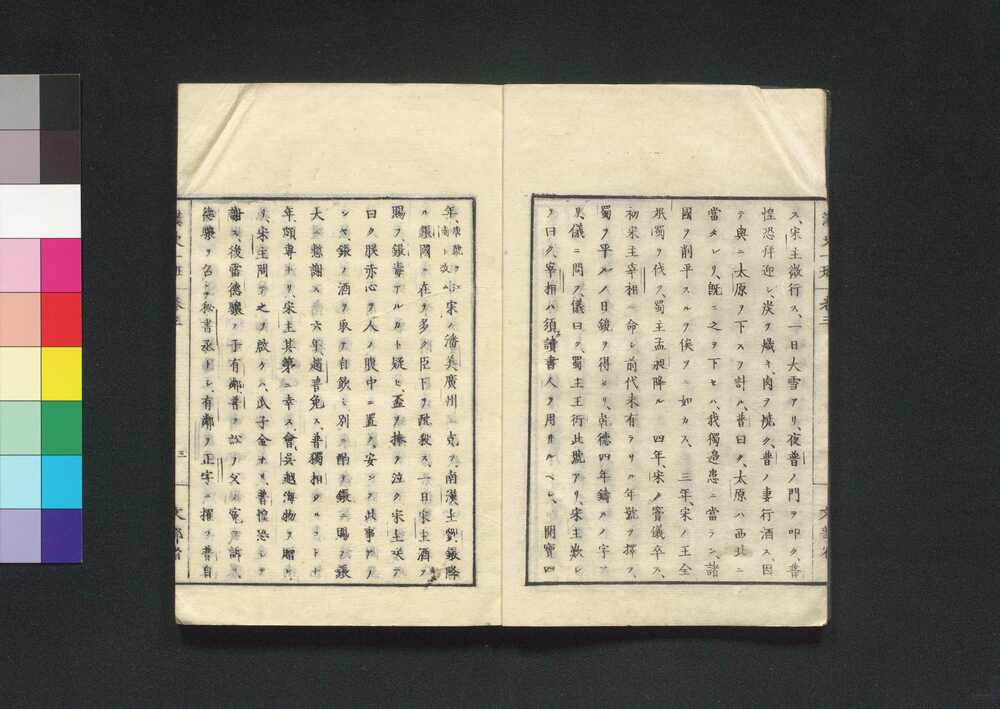 ス、宋主微行ス、一日大雪アリ、夜普ノ門ヲ叩ク、普
惶恐拜迎シ、炭ヲ熾キ、肉ヲ燒ク、普ノ妻行酒ス因
テ與ニ太原ヲ下スヲ計ル、普曰ク、太原ハ西北ニ
當タレリ、既ニ之ヲ下セハ、我獨邉患ニ當ラン、諸
國ヲ削平スルヲ俟ツニ如カス、三年、宋ノ王全
斌蜀ヲ伐ツ、蜀主孟昶降ル 四年、宋ノ竇儀卒ス、
初宋主宰相ニ命シ前代未有ラサル年號ヲ擇フ、
蜀ヲ平ルノ日鏡ヲ得シリ、乾德四年鑄ルノ字アリ
儀ニ問フ、儀曰ク、蜀主王衍此號アリ、宋主歎シ
テ曰ク、宰相ハ須讀書人ヲ用井ルベシ、 開寶四
年、宋ノ潘美廣州ニ克ツ、南漢主劉鋹降
ル鋹國ニ在ヲ多ク臣下ヲ酖殺ス、一日宋主酒ヲ
賜フ、鋹毒アルカト疑ヒ、盃ヲ捧ケ泣ク、宋主咲テ
曰ク朕赤心ヲ人ノ腹中ニ置ク、安ンソ此事アラ
ンヤ、鋹ノ酒ヲ取テ自飲シ、別ニ酌テ鋹ニ賜フ、鋹
大ニ慙謝ス 六年、趙普免ス、普獨相タルコト十
年、頗專ナリ、宋主其第ニ幸ス、會吳越海物ヲ贈ル
リ、宋主問テ之ヲ啟クハ、瓜子金ナリ、普惶恐シテ
謝ス、後雷德驤ノ子有鄰、普ヲ訟ヘ父ノ寃ヲ訴フ、
德驤ヲ召シ秘書丞トシ、有鄰ヲ正字ニ擢ツ、普自
三
文部省